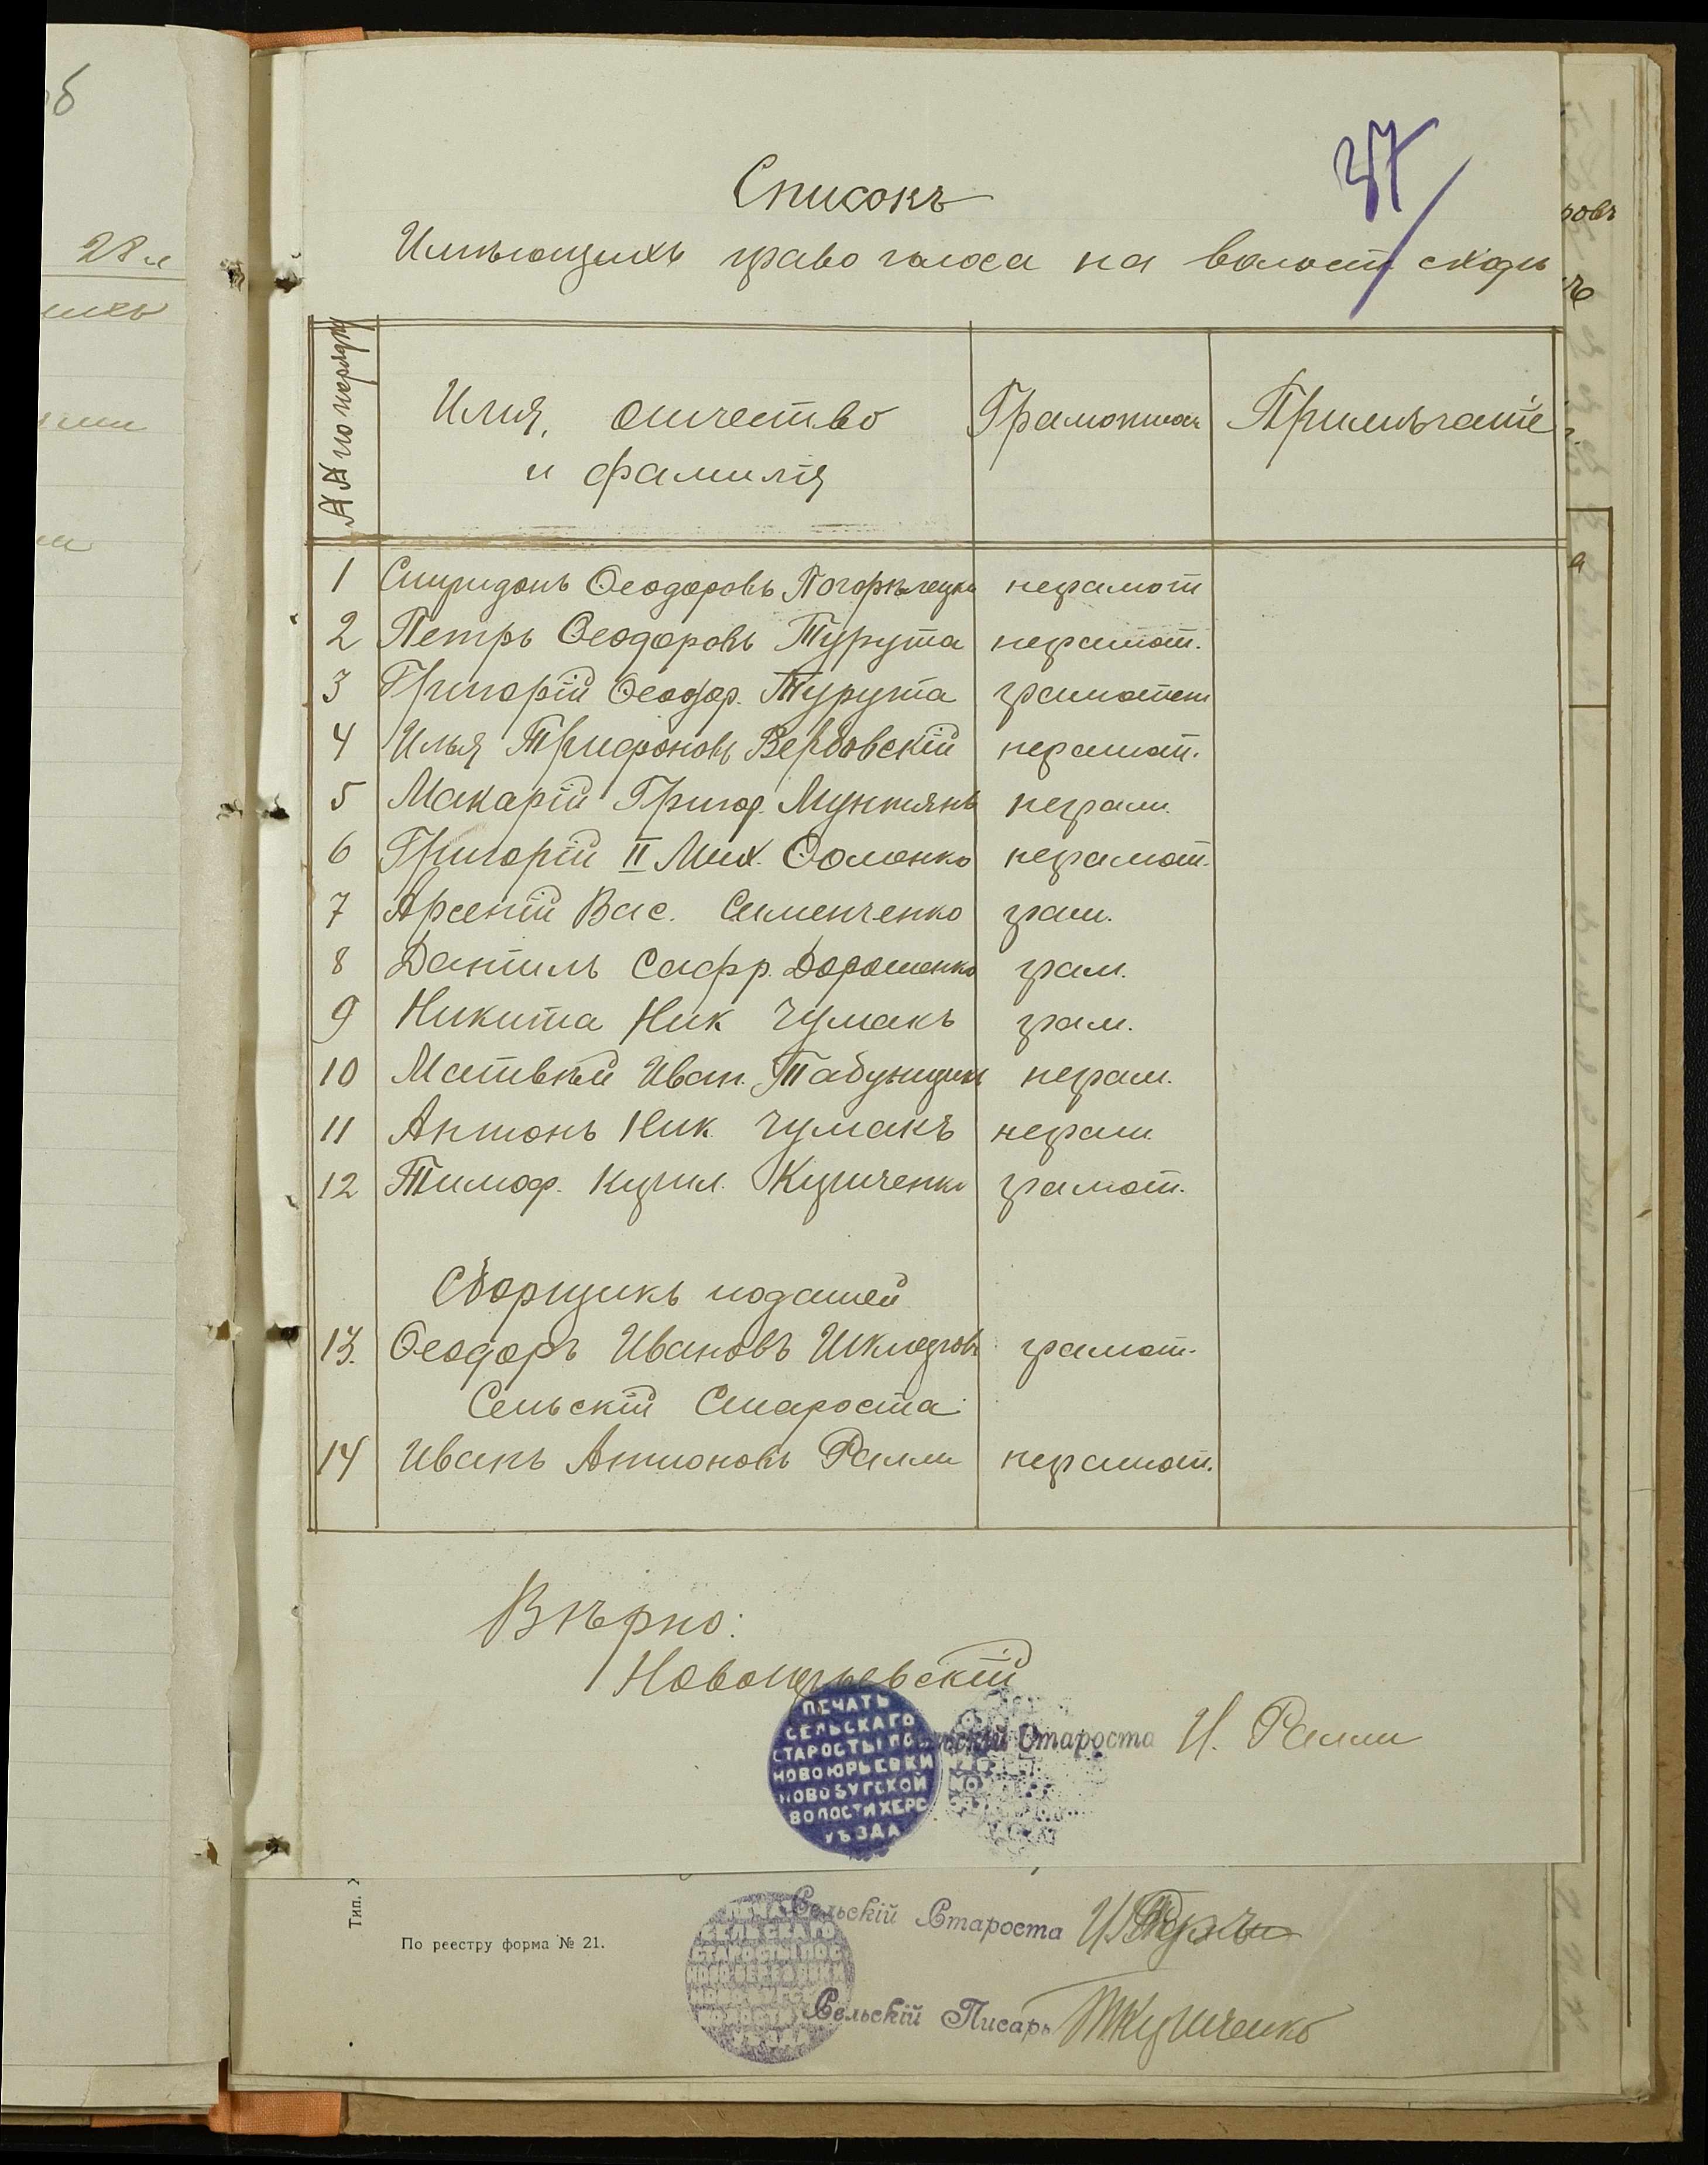 28
37
Списокъ
Имѣющихъ право голоса на волост сходѣ
№№ по порядку
Имя, отчество
и фамилія
Грамотность
Примѣчаніе
1 Спиридонъ Ѳеодоровъ Погорѣлецкі неграмот
2 Петръ Ѳеодоровъ Турута неграмот.
3 Григорій Ѳеодор. Турута грамотен
4 Илья Трифоновъ Вербовскій неграмот.
5 Макарій Григор. Мунтянъ неграм.
6 Григорій II Мих. Соломко неграмот.
7 Арсеній Вас. Сименченко грам.
8 Даніилъ Сафр. Дорошенко грам.
9 Никита Ник Чумакъ грам.
10 Матвѣй Иван. Табунщикъ неграм.
11 Антонъ Ник. Чумакъ неграм.
12 Тимоф. Кирил. Кириченко грамот.
Сборщикъ податей
13. Ѳеодоръ Ивановъ грамот.
Сельскій Староста
14 Иванъ Антоновъ Ралли неграмот.
Вѣрно:
Новоюрьевскій
Староста И. Ралли
ПЕЧАТЬ
СЕЛЬСКАГО
СТАРОСТЫ ПОС
НОВОЮРЬЕВКИ
НОВОБУГСКОЙ
ВОЛОСТИ ХЕРС
УѢЗДА
Тип.
По реестру форма № 21.
Сельскій Староста
Сельскій Писарь ТКириченко